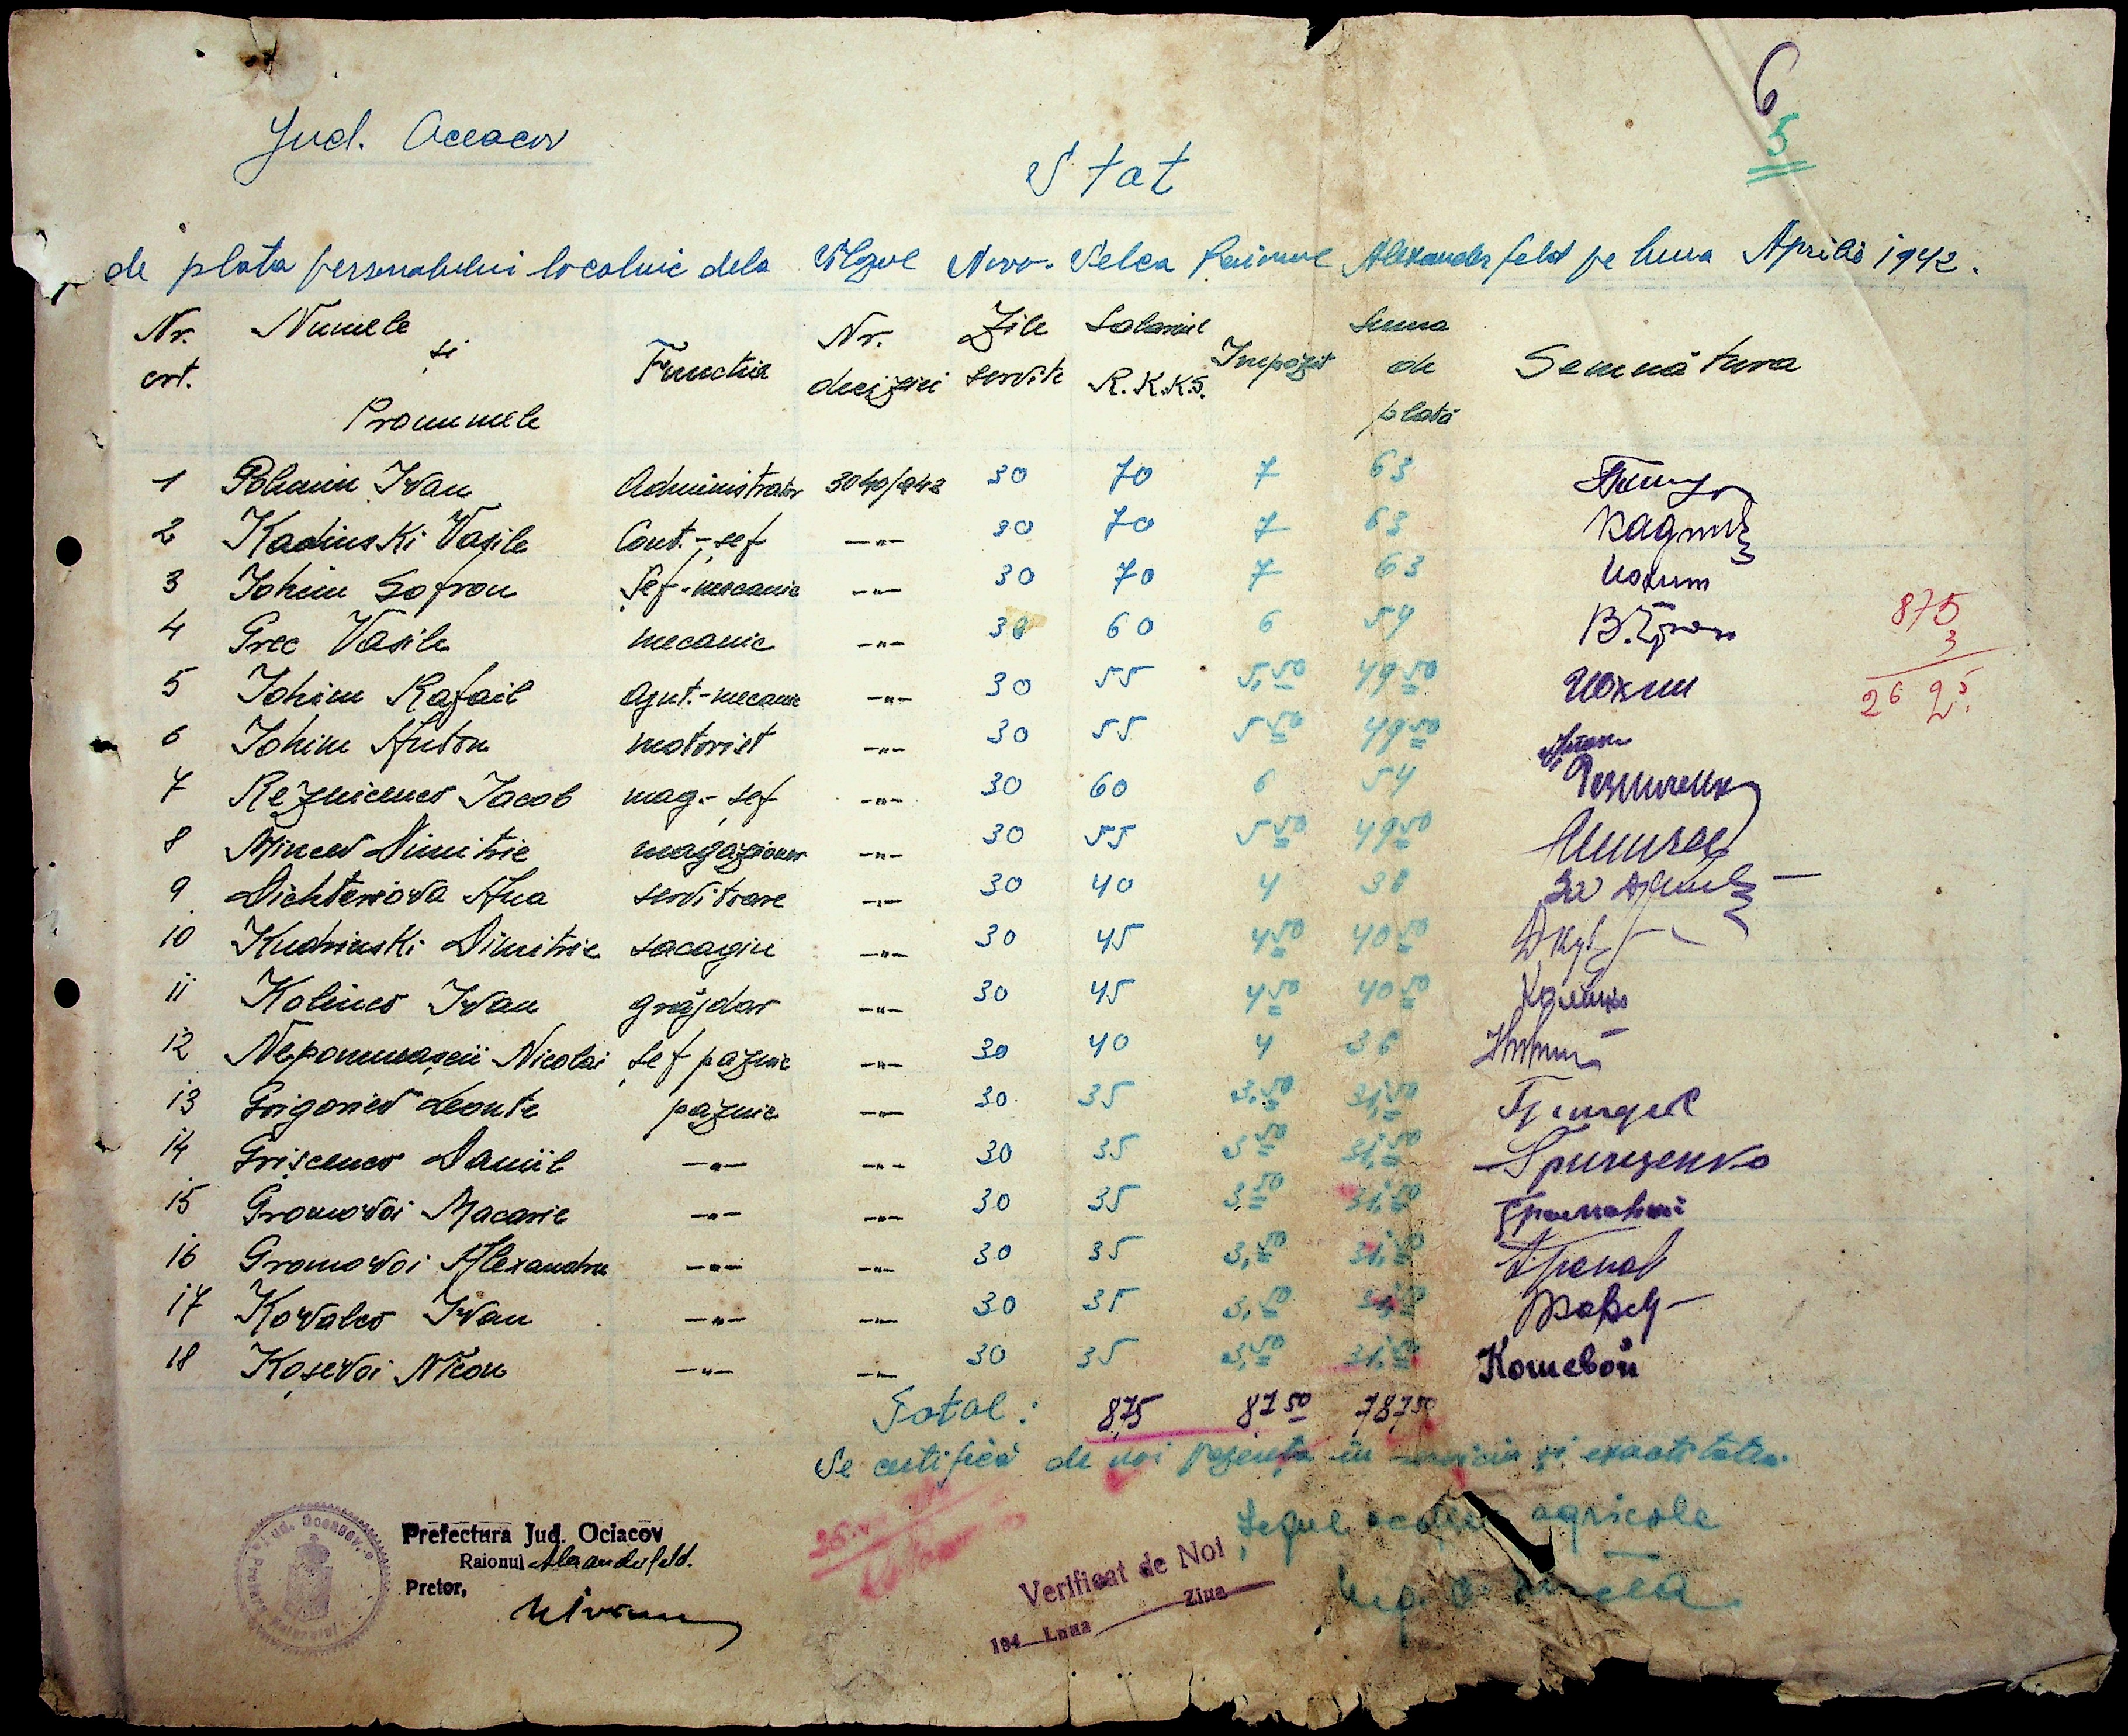 6
5
Jud. Oceacov
Stat
de plata personalului localnic dela Novo-Selca Raionul Alexanderfeld pe luna Aprilie 1942.
Nr. crt. Numele și Pronumele Functia Nr. deciziei Zile servite Salariul R.K.K.S. Impozit Suma de plată Semnătura
1 Ivan Administrator 3040/942 30 70 7 63
2 Kadinski Vasile Cont.-șef -„- 30 70 7 63
3 Iohim Sofron Șef-mecanic -„- 30 70 7 63 Иохим
4 Grec Vasile mecanic -„- 30 60 6 54
5 Iohim Rafail Ajut.-mecanic -„- 30 55 5,50 49 50 Иохим
6 Iohim Anton motorist -„- 30 55 5 50 49 50
7 Reznicenco Iacob mag.-șef -„- 30 60 6 54 Резниченко
8 Mincev Dimitrie magazioner -„- 30 55 5 50 49 50
9 Ana servitoare -„- 30 40 4
10 Kudrinski Dimitrie sacagiu -„- 30 45 4 50 40 50
11 Kolinco Ivan grăjdar -„- 30 45 4 50 40 50
12 Nicolai șef paznic -„- 30 40 4 36
13 Grigoriev Leonte paznic -„- 30 35 3,50 31,50
14 Grișcenco Daniil -„- -„- 30 35 3 50 31,50 Грищенко
15 Gromovoi Macarie -„- -„- 30 35 3,50 31,50 Громовой
16 Gromovoi Alexandru -„- -„- 30 35 3,50 31,50
17 Kovalco Ivan -„- -„- 30 35 3,50 31,50
18 Koșevoi Nicon -„- -„- 30 35 3,50 31,50 Кошевой
875
3
26 25
Total: 875 87 50 787 50
Se certifică de noi prezența în serviciu și exactitatea.
Șeful agricole
Prefectura Jud. Ociacov
Raionul Alexanderfeld.
Pretor,
Verificat de Noi
194 Luna Ziua